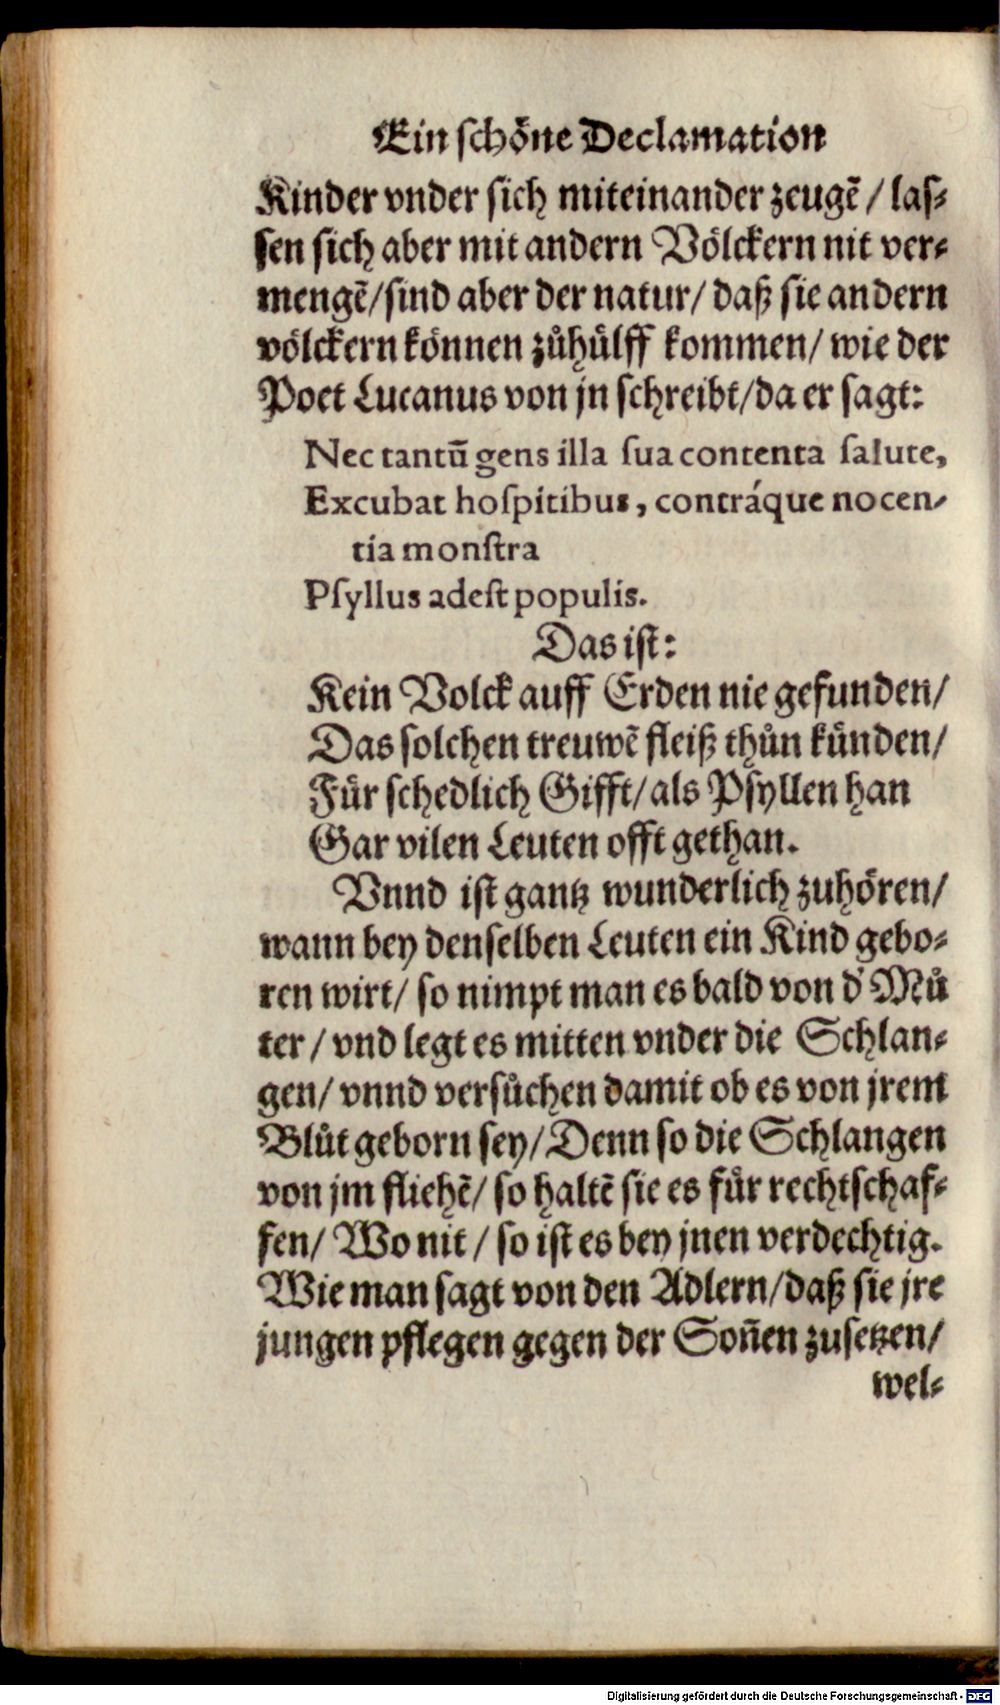 Ein schoͤne Declamation
Kinder vnder sich miteinander zeugẽ / las⸗
sen sich aber mit andern Voͤlckern nit ver⸗
mengẽ/sind aber der natur/ daß sie andern
voͤlckern koͤnnen zuͦhuͤlff kommen/ wie der
Poet Lucanus von jn schreibt/da er sagt:
Nec tantũ gens illa ſua contenta ſalute,
Excubat hoſpitibus, contráque nocen-
tia monſtra
Pſyllus adeſt populis.
Das ist:
Kein Volck auff Erden nie gefunden/
Das solchen treuwẽ fleiß thuͦn kuͤnden/
Fuͤr schedlich Gifft/als Psyllen han
Gar vilen Leuten offt gethan.
Vnnd ist gantz wunderlich zuhoͤren/
wann bey denselben Leuten ein Kind gebo⸗
ren wirt/ so nimpt man es bald von d' Muͦ
ter / vnd legt es mitten vnder die Schlan⸗
gen/ vnnd versuͦchen damit ob es von jrem
Bluͦt geborn sey/Denn so die Schlangen
von jm fliehẽ/ so haltẽ sie es fuͤr rechtschaf⸗
fen/ Wo nit / so ist es bey jnen verdechtig.
Wie man sagt von den Adlern/daß sie jre
jungen pflegen gegen der Soñen zusetzen/
wel⸗
Digitalisierung gefördert durch die Deutsche Forschungsgemeinschaft - DFG